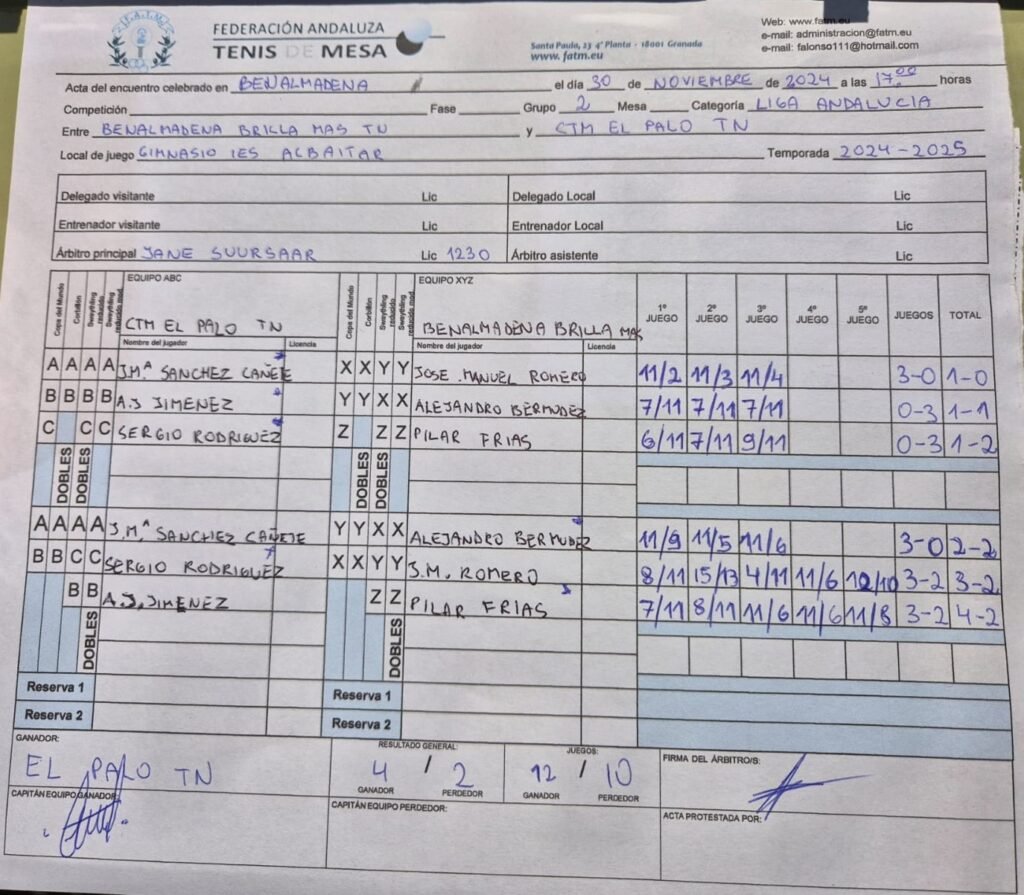 F.A.T.M.
FEDERACIÓN ANDALUZA
TENIS DE MESA
Santa Paula, 23 4ª Planta - 18001 Granada
www. fatm.eu
Web: www.fatm.eu
e-mail: administracion@fatm.eu
e-mail: falonso111@hotmail.com
Acta del encuentro celebrado en BENALMADENA el día 30 de NOVIEMBRE de 2024 a las 17:00 horas
Competición Fase Grupo 2 Mesa Categoría LIGA ANDALUCIA
Entre BENALMADENA BRILLA MAS TN y CTM EL PALO TN
Local de juego GIMNASIO IES ALBAITAR Temporada 2024-2025
Delegado visitante Lic Delegado Local Lic
Entrenador visitante Lic Entrenador Local Lic
Árbitro principal JANE SUURSAAR Lic 1230 Árbitro asistente Lic
Copa del Mundo Corbillón Swaythling reducido Swaythling reducido mod. EQUIPO ABC Copa del Mundo Corbillón Swaythling reducido Swaythling reducido mod. EQUIPO XYZ 1º JUEGO 2º JUEGO 3º JUEGO 4º JUEGO 5º JUEGO JUEGOS TOTAL
CTM EL PALO TN BENALMADENA BRILLA MAS
Nombre del jugador Licencia Nombre del jugador Licencia
A A A A J.Mª SANCHEZ CAÑETE X X Y Y JOSE MANUEL ROMERO 11/2 11/3 11/4 3-0 1-0
B B B B A.J JIMENEZ Y Y X X ALEJANDRO BERMUDEZ 7/11 7/11 7/11 0-3 1-1
C C C SERGIO RODRIGUEZ Z Z Z PILAR FRIAS 6/11 7/11 9/11 0-3 1-2
DOBLES DOBLES DOBLES DOBLES
A A A A J.Mª SANCHEZ CAÑETE Y Y X X ALEJANDRO BERMUDEZ 11/9 11/5 11/6 3-0 2-2
B B C C SERGIO RODRIGUEZ X X Y Y J.M. ROMERO 8/11 15/13 4/11 11/6 12/10 3-2 3-2
B B A.J. JIMENEZ Z Z PILAR FRIAS 7/11 8/11 11/6 11/6 11/8 3-2 4-2
DOBLES DOBLES
Reserva 1 Reserva 1
Reserva 2 Reserva 2
GANADOR: RESULTADO GENERAL: JUEGOS: FIRMA DEL ÁRBITRO/S:
EL PALO TN 4 / 2 12 / 10
GANADOR PERDEDOR GANADOR PERDEDOR
CAPITÁN EQUIPO GANADOR: CAPITÁN EQUIPO PERDEDOR: ACTA PROTESTADA POR: